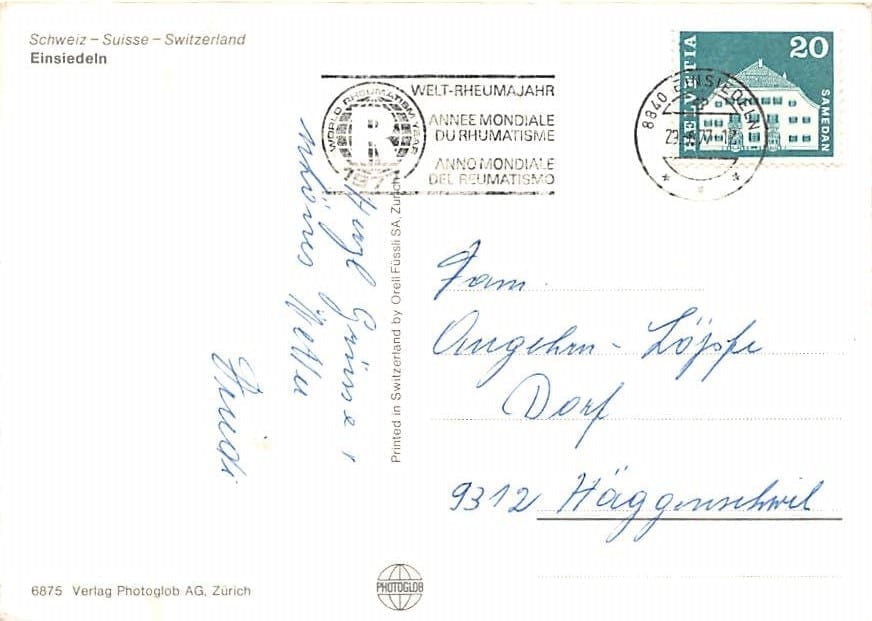 Schweiz – Suisse – Switzerland
Einsiedeln
WORLD RHEUMATISM YEAR
R
1977
WELT-RHEUMAJAHR
ANNEE MONDIALE
DU RHUMATISME
ANNO MONDIALE
DEL REUMATISMO
HELVETIA
20
SAMEDAN
8840 EINSIEDELN
77-12
Herzl Grüsse
schönes Wetter
Printed in Switzerland by Orell Füssli SA, Zürich
Fam.
Angehrn - Löpfe
Dorf
9312 Häggenschwil
6875 Verlag Photoglob AG, Zürich
PHOTOGLOB